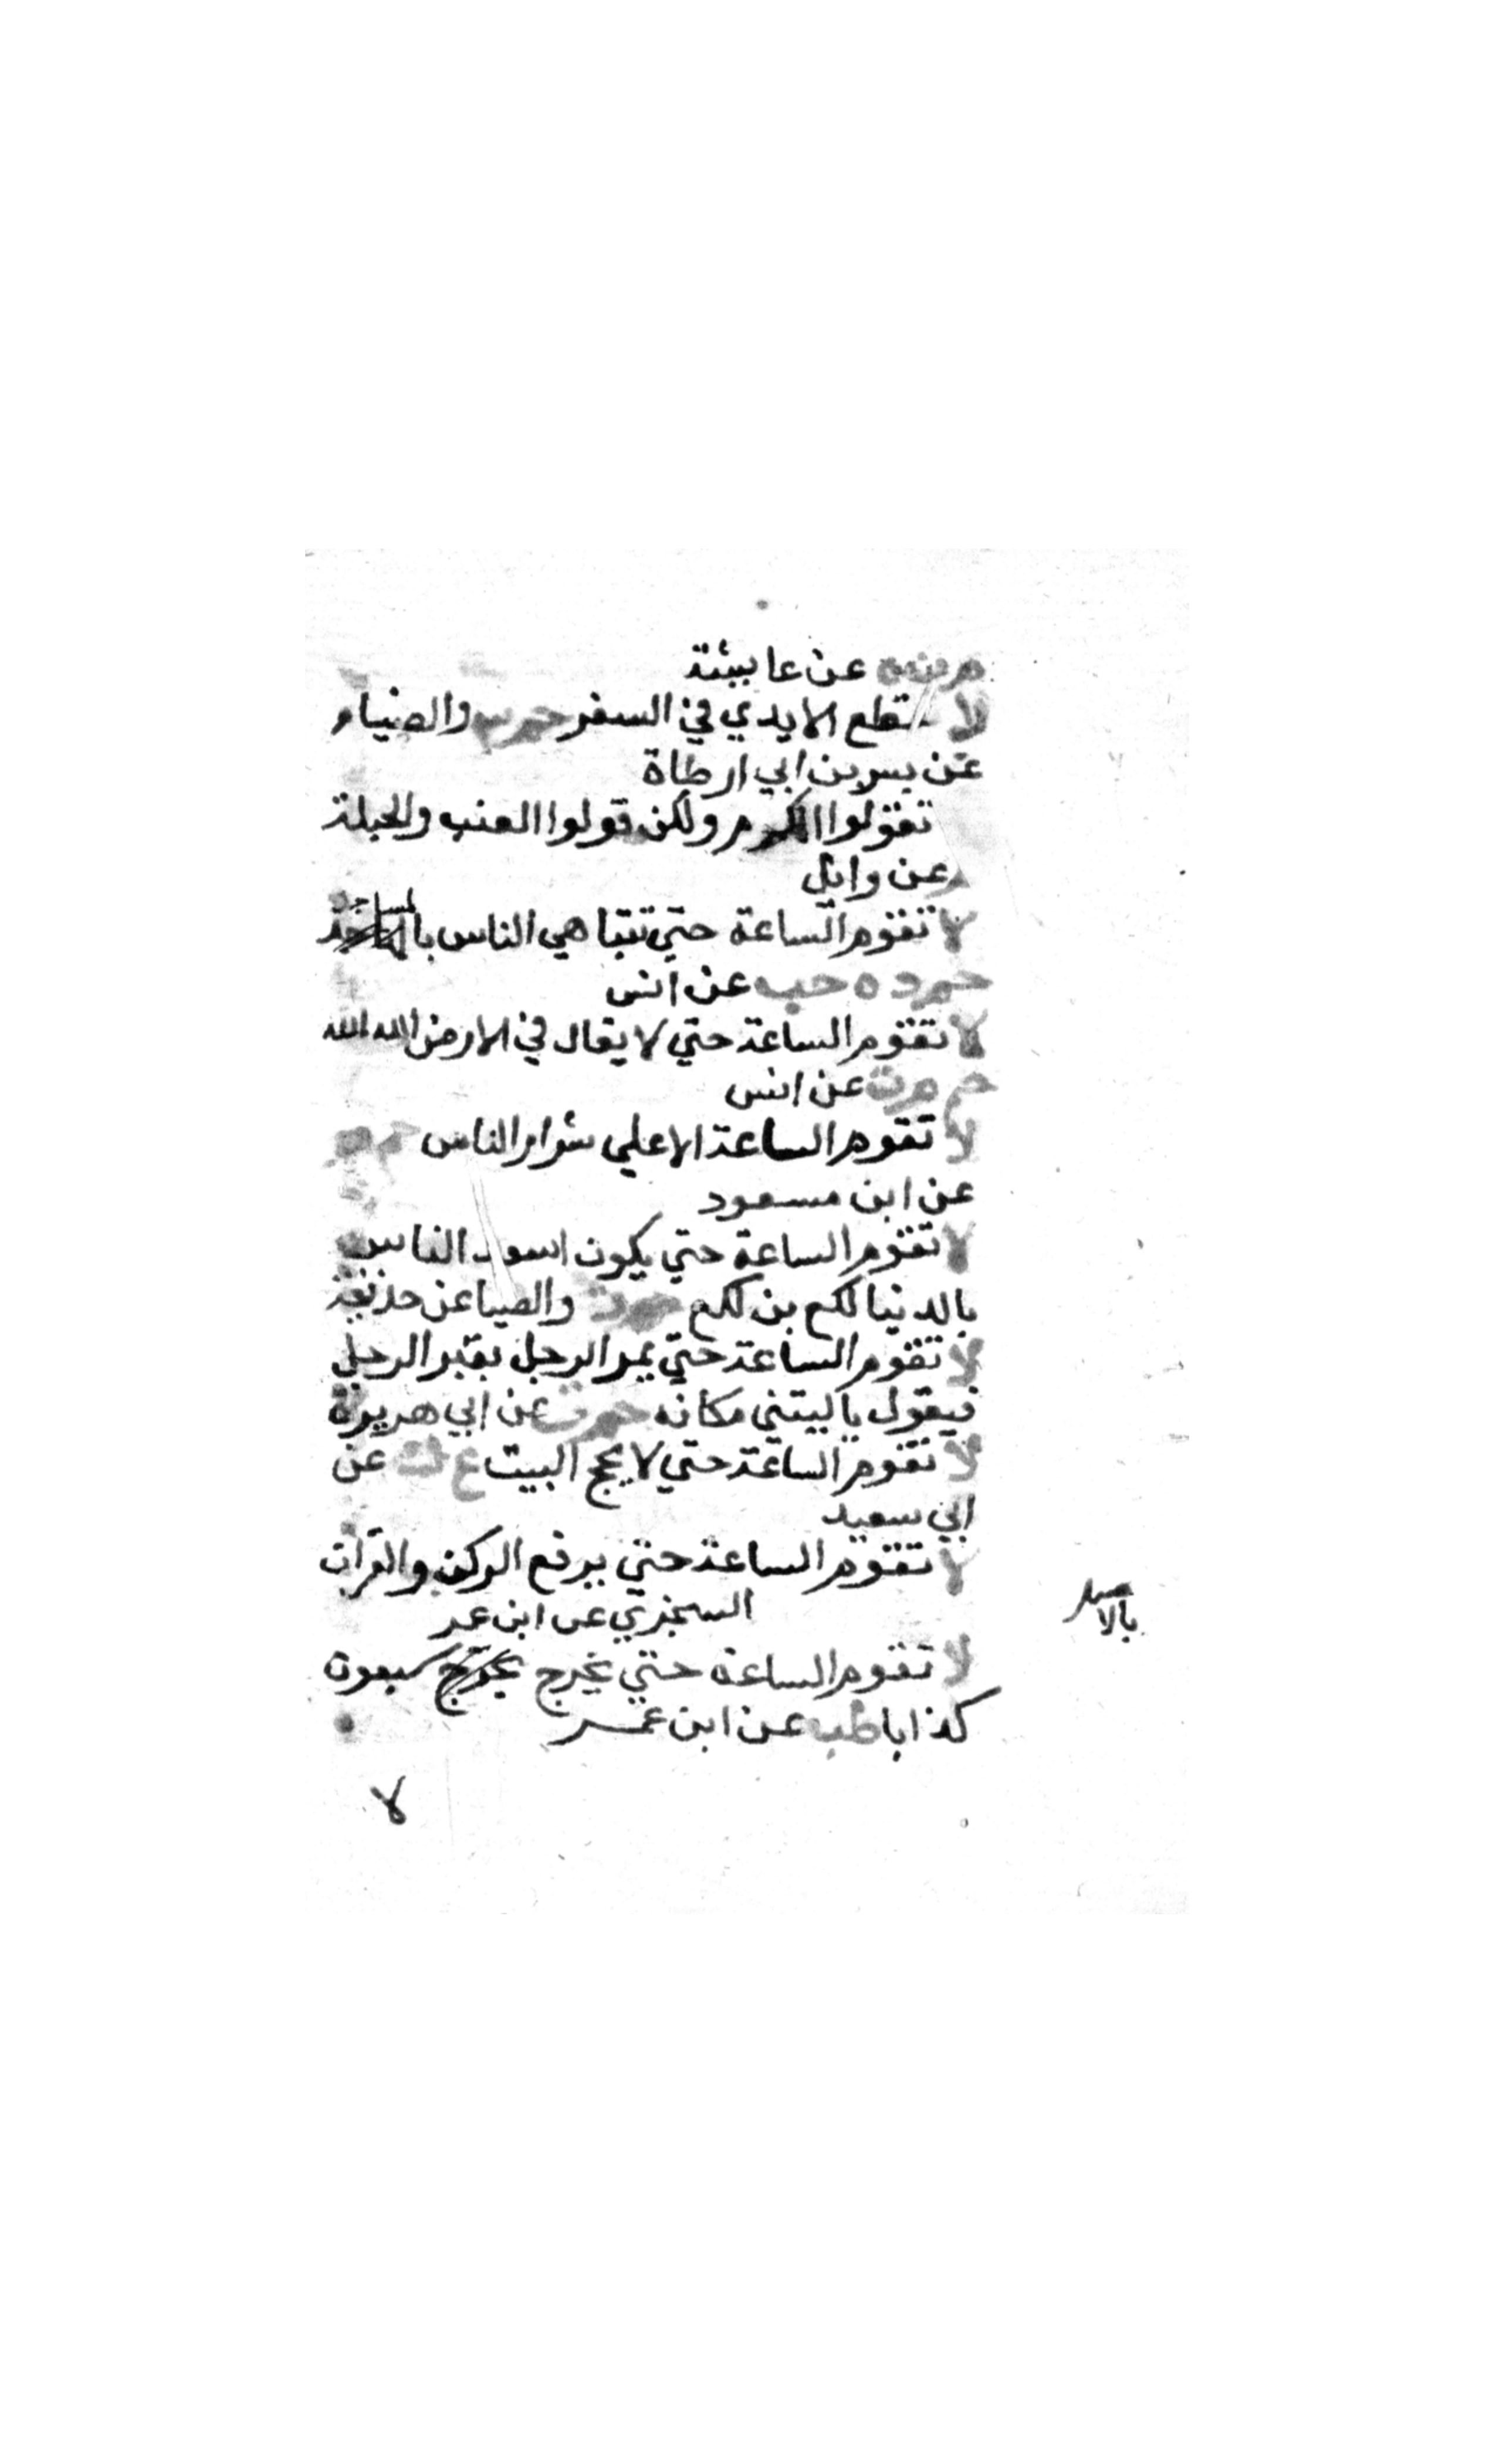 م ن ه عن عايشة
لا تقطع الايدي في السفر حم ٣ والضياء
عن بسر بن ابي ارطاة
تقولوا الكرم ولكن قولوا العنب والحبلة
م عن وايل
لا تقوم الساعة حتي تتباهي الناس بالمساجد
حم د ه حب عن انس
لا تقوم الساعة حتي لا يقال في الارض الله الله
حم م ت عن انس
لا تقوم الساعة الا علي شرار الناس حم م
عن ابن مسعود
لا تقوم الساعة حتي يكون اسعد الناس
بالدنيا لكع بن لكع حم ت والضيا عن حذيفة
لا تقوم الساعة حتي يمر الرجل بقبر الرجل
فيقول ياليتني مكانه حم ق عن ابي هريرة
لا تقوم الساعة حتي لا يحج البيت ع ك عن
ابي سعيد
لا تقوم الساعة حتي يرفع الركن والقرآن
السجزي عن ابن عمر
لا تقوم الساعة حتي يخرج سبعون
كذابا طب عن ابن عمر
لا